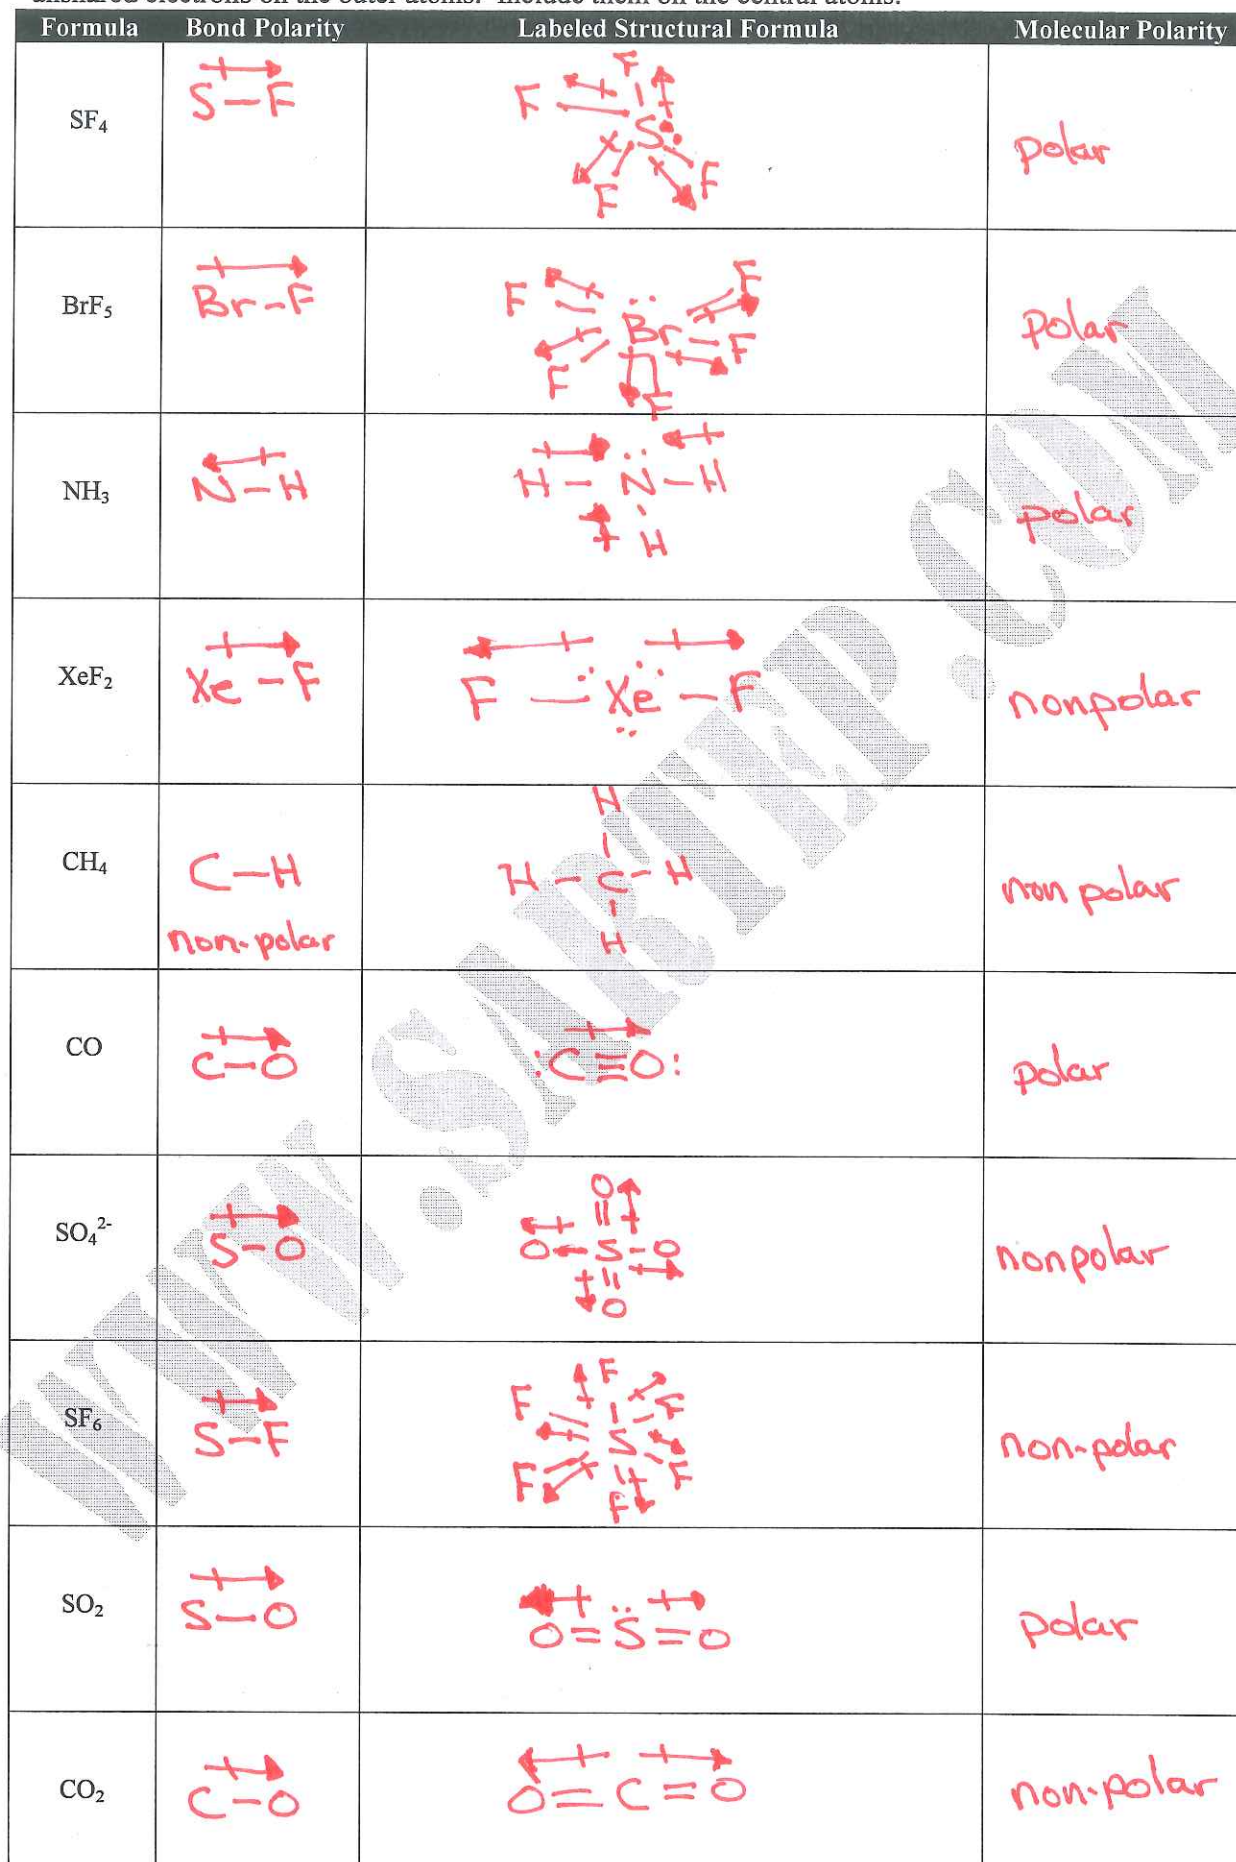 unshared electrons on the outer atoms. Include them on the central atoms.
Formula Bond Polarity Labeled Structural Formula Molecular Polarity
SF₄ S–F F F S: F F polar
BrF₅ Br–F F F Br F F F polar
NH₃ N–H H–N–H H polar
XeF₂ Xe–F F–Xe–F nonpolar
CH₄ C–H non-polar H H–C–H H non polar
CO C–O :C≡O: polar
SO₄²⁻ S–O O O–S–O O nonpolar
SF₆ S–F F F F S F F F non-polar
SO₂ S–O O=S=O polar
CO₂ C–O O=C=O non-polar
WWW.SARTEP.COM